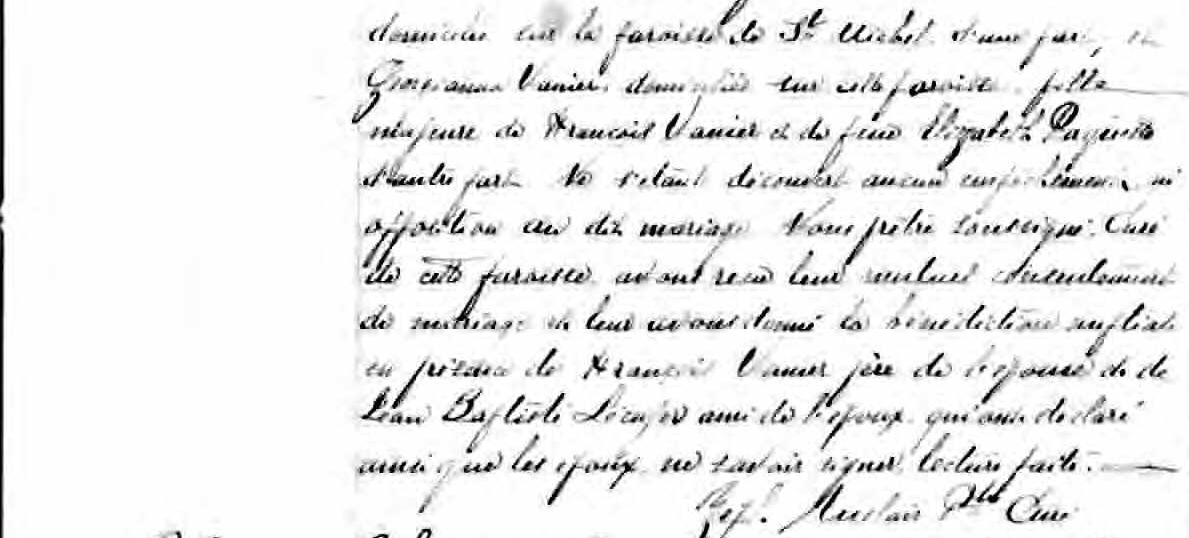 domicilié sur la paroisse de St Michel d'une part, et
Georgianna Vanier, domiciliée sur cette paroisse, fille
majeure de François Vanier et de feue Elizabeth Paquette
d'autre part. Ne s'étant découvert aucun empêchement, ni
opposition au dit mariage Nous prêtre soussigné, Curé
de cette paroisse, avons recu leur mutuel consentement
de mariage et leur avons donné la bénédiction nuptiale
en présence de François Vanier père de l'épouse et de
Jean Baptiste ami de l'époux, qui ont déclaré
ainsi que les époux ne savoir signer, lecture faite.
Zeph. Auclair Ptre Curé